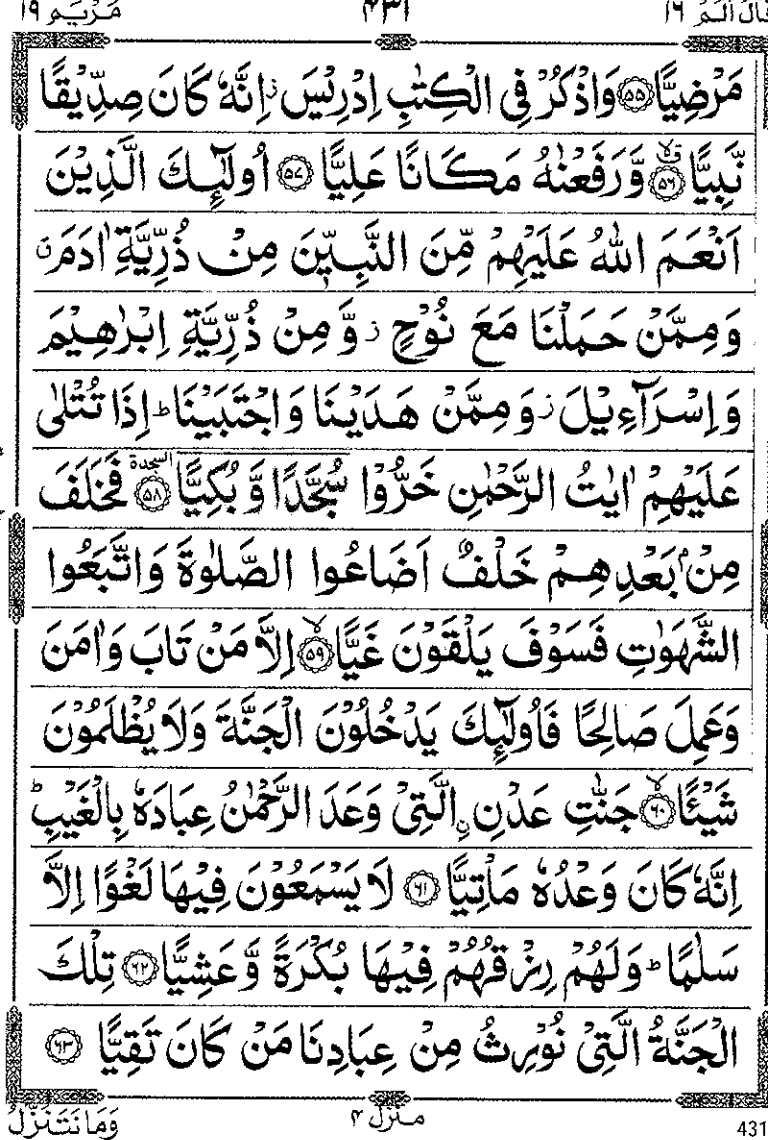 قَالَ اَلَمْ ١٦ ٤٣١ مَرْيَم ١٩
مَرْضِيًّا ﴿٥٥﴾ وَاذْكُرْ فِى الْكِتٰبِ اِدْرِيْسَ ز اِنَّهٗ كَانَ صِدِّيْقًا
نَّبِيًّا ﴿٥٦﴾ وَّرَفَعْنٰهُ مَكَانًا عَلِيًّا ﴿٥٧﴾ اُولٰٓئِكَ الَّذِيْنَ
اَنْعَمَ اللّٰهُ عَلَيْهِمْ مِّنَ النَّبِيّٖنَ مِنْ ذُرِّيَّةِ اٰدَمَ ق
وَمِمَّنْ حَمَلْنَا مَعَ نُوْحٍ ز وَّمِنْ ذُرِّيَّةِ اِبْرٰهِيْمَ
وَاِسْرَآءِيْلَ ز وَمِمَّنْ هَدَيْنَا وَاجْتَبَيْنَا ط اِذَا تُتْلٰى
عَلَيْهِمْ اٰيٰتُ الرَّحْمٰنِ خَرُّوْا سُجَّدًا وَّبُكِيًّا ﴿٥٨﴾ السجدة فَخَلَفَ
مِنْۢ بَعْدِهِمْ خَلْفٌ اَضَاعُوا الصَّلٰوةَ وَاتَّبَعُوا
الشَّهَوٰتِ فَسَوْفَ يَلْقَوْنَ غَيًّا ﴿٥٩﴾ لا اِلَّا مَنْ تَابَ وَاٰمَنَ
وَعَمِلَ صَالِحًا فَاُولٰٓئِكَ يَدْخُلُوْنَ الْجَنَّةَ وَلَا يُظْلَمُوْنَ
شَيْئًا ﴿٦٠﴾ لا جَنّٰتِ عَدْنِ ۨالَّتِىْ وَعَدَ الرَّحْمٰنُ عِبَادَهٗ بِالْغَيْبِ ط
اِنَّهٗ كَانَ وَعْدُهٗ مَاْتِيًّا ﴿٦١﴾ لَا يَسْمَعُوْنَ فِيْهَا لَغْوًا اِلَّا
سَلٰمًا ط وَلَهُمْ رِزْقُهُمْ فِيْهَا بُكْرَةً وَّعَشِيًّا ﴿٦٢﴾ تِلْكَ
الْجَنَّةُ الَّتِىْ نُوْرِثُ مِنْ عِبَادِنَا مَنْ كَانَ تَقِيًّا ﴿٦٣﴾
منزل ٤ وَمَا نَتَنَزَّلُ
431